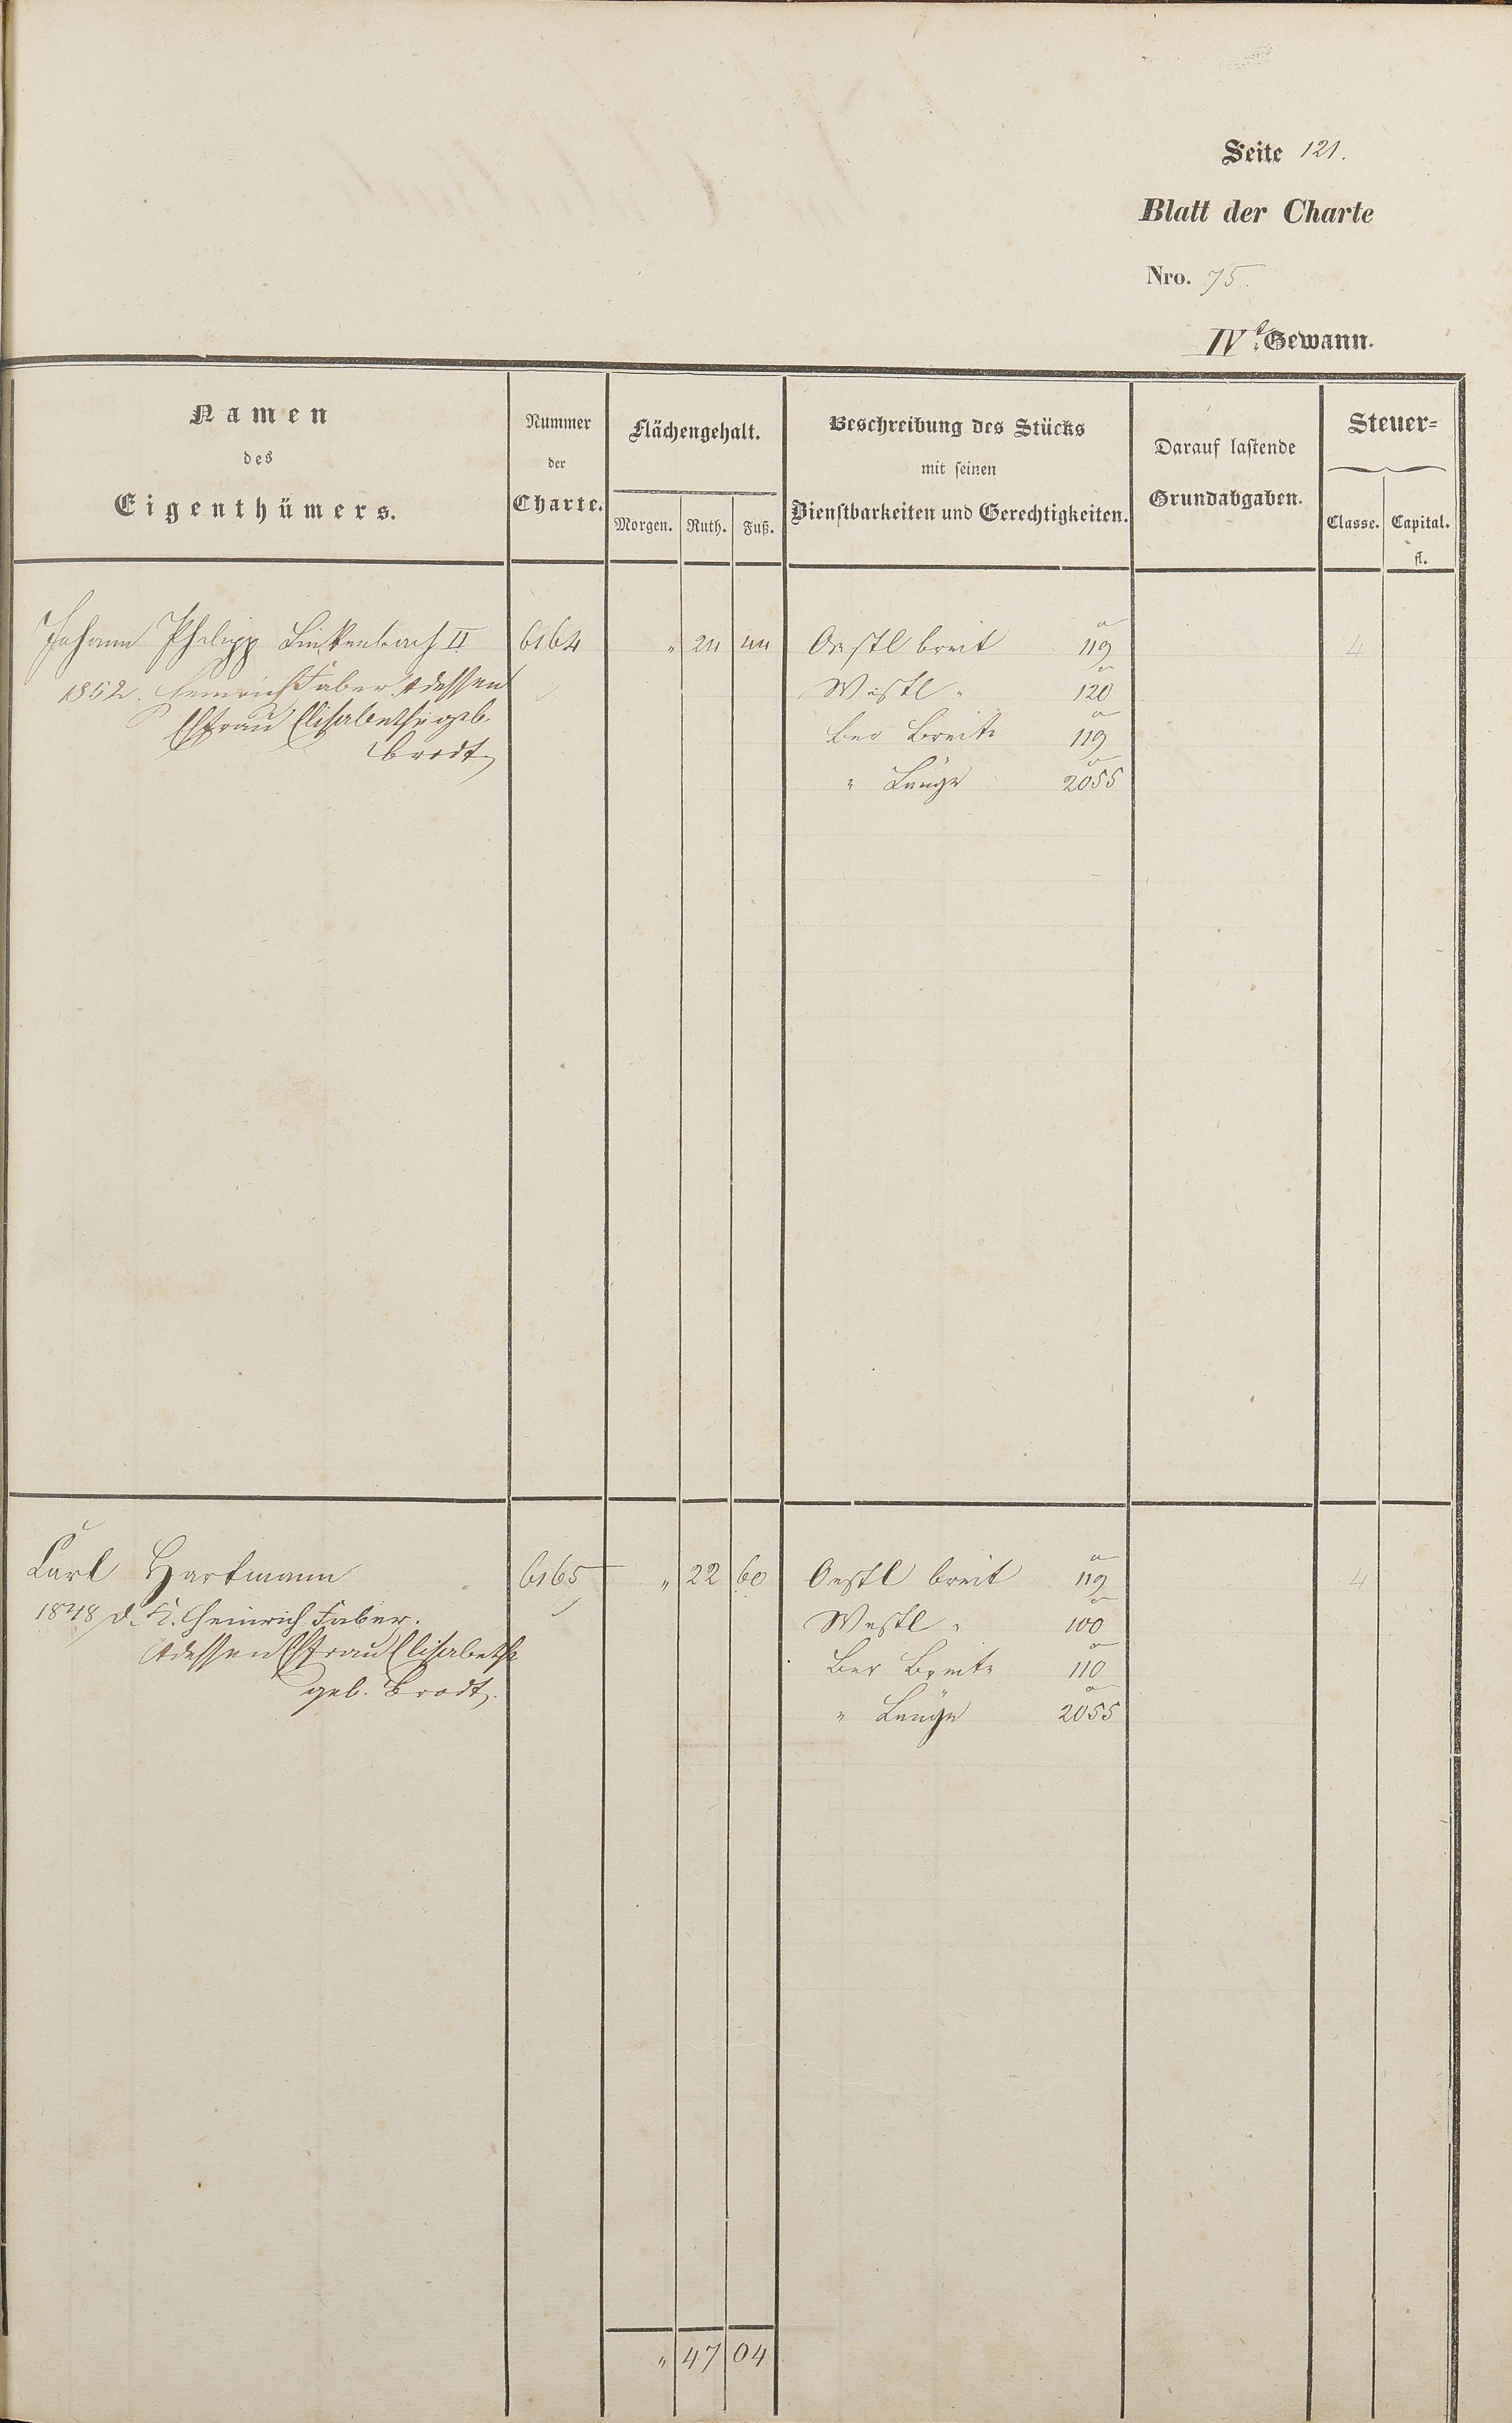 Seite 121.
Blatt der Charte
Nro. 75.
IVt. Gewann.
Namen
des
Eigenthümers.
Nummer
der
Charte.
Flächengehalt.
Morgen. Ruth. Fuß.
Beschreibung des Stücks
mit seinen
Dienstbarkeiten und Gerechtigkeiten.
Darauf lastende
Grundabgaben.
Steuer=
Classe. Capital.
fl.
Johann Philipp Linkenbach II 6164 " 24 44 Oestl breit 119 4
1852. Heinrich Faber & dessen Westl " 120
Ehfrau Elisabetha geb. Ber Breite 119
Brodt
" Länge 2055
Carl Hartmann 6165 " 22 60 Oestl breit 119 4
1848 d. K. Heinrich Faber. Westl " 100
& dessen Ehfrau Elisabetha Ber Breite 110
geb. Brodt. " Länge 2055
" 47 04